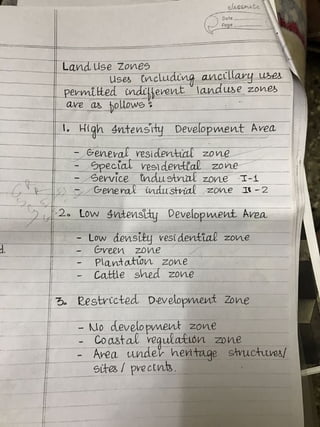 classmate
Date
Page
Land Use Zones
Uses Including ancillary uses
permitted indifferent landuse zones
are as follows:
1. High Intensity Development Area
- General residential zone
- Special residential zone
- Service Industrial zone I-1
- General industrial zone II-2
2. Low Intensity Development Area
- Low density residential zone
- Green zone
- Plantation zone
- Cattle shed zone
3. Restricted Development Zone
- No development zone
- Coastal regulation zone
- Area under heritage structures/
sites / precints.